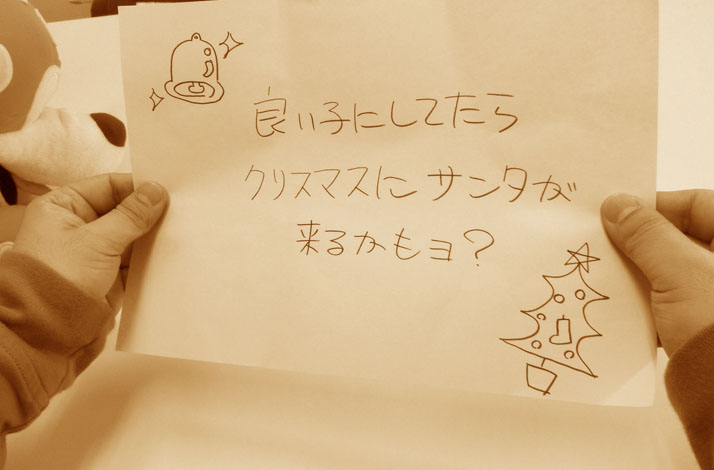 良い子にしてたら
クリスマスにサンタが
来るかもヨ？